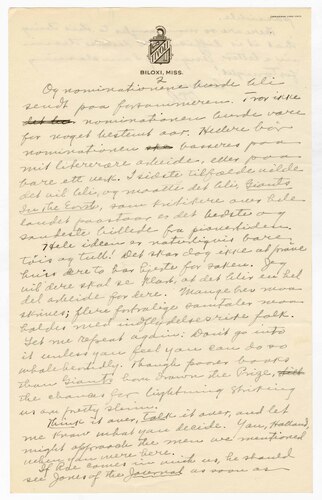 BILOXI, MISS.
2
Og nominationene burde bli
sendt paa forsommeren. Tror ikke
nominationen burde være
for noget bestemt aar. Hedere bør
nominationen baseres paa
mit literære arbeide, eller paa
bare ett verk. I sidste tilfælde vilde
det vil bli, og maatte det bli, Giants
In the Earth, som kritikere over hele
landet paastaar er det bedste og
sandeste billede fra pionertiden.
Hele ideen er naturligvis bare
tøis og tull! Det skar dog ikke at prøve
hvis dere to har hjerte for saken. Jeg
vil dere skal se klart, at det blir en hel
del arbeide for dere. Mange brev maa
skrives; flere fortrolige samtaler maa
holdes med indflydelsesrike folk.
Let me repeat again: Don't go into
it unless you feel you can do so
wholeheartedly. Though poorer books
than Giants have drawn the Prize,
the chances for lightning striking
us are pretty slim.
Think it over, talk it over, and let
me know what you decide. You, Halland,
might approach the men we mentioned
when you were here.
If Roe comes in with us, he should
see Jones of the Journal as soon as